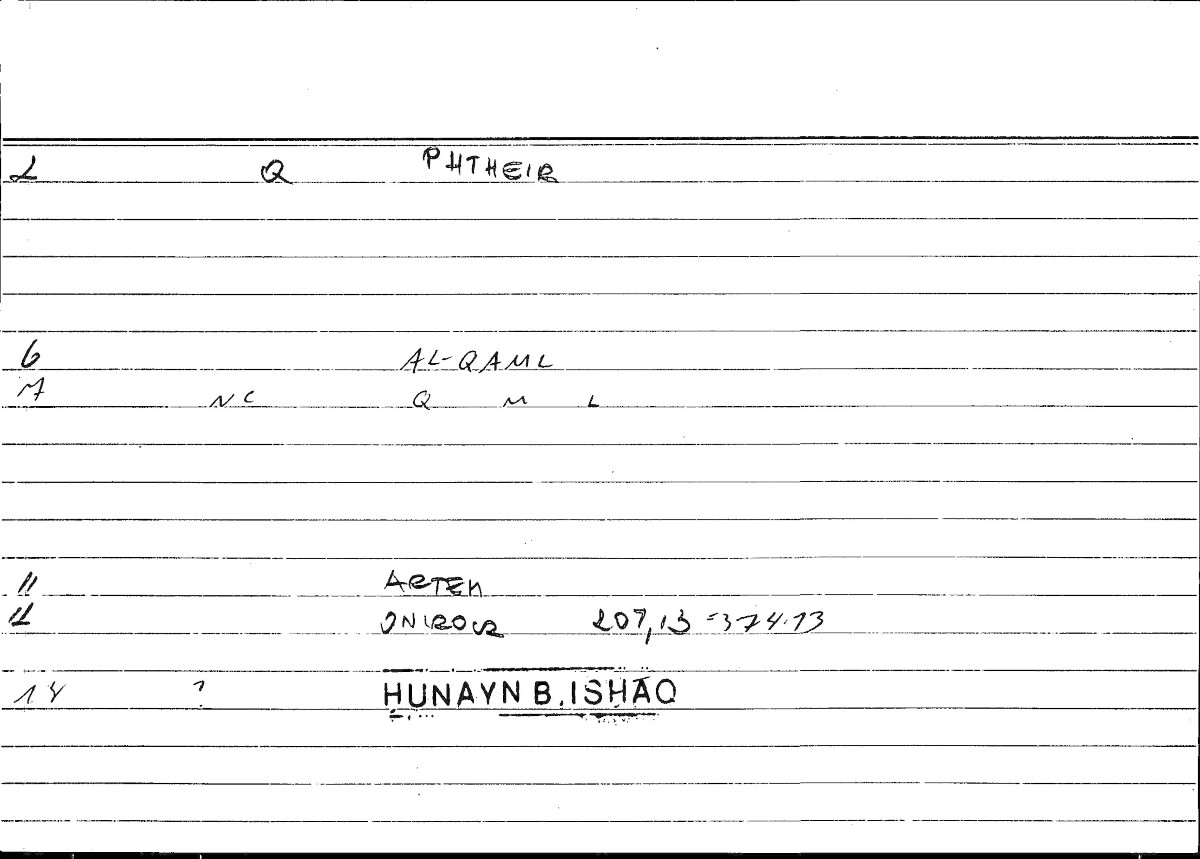 2 Q PHTHEIR
6 AL-QAML
7 NC Q M L
11 ARTEM
12 ONIROCR 207,13 = 374.13
14 ? HUNAYN B. ISHAQ